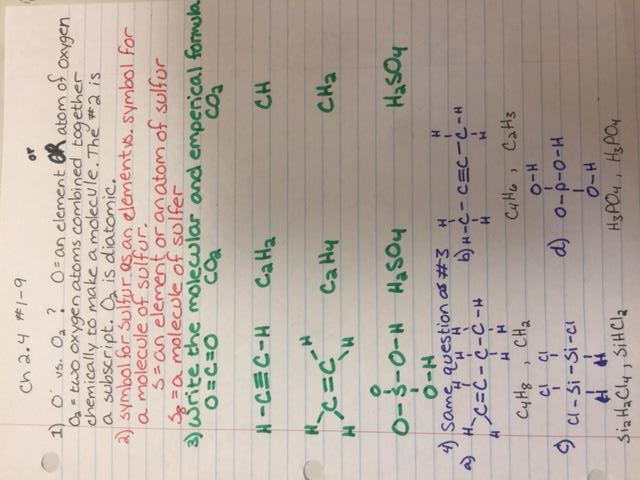 Ch 2.4 #1-9
1) O vs. O₂ ? O = an element OR or atom of oxygen
O₂ = two oxygen atoms combined together
chemically to make a molecule. The #2 is
a subscript. O₂ is diatomic.
2) symbol for sulfur as an element vs. symbol for
a molecule of sulfur.
S = an element or an atom of sulfur
S₈ = a molecule of sulfer
3) Write the molecular and emperical formula
O=C=O CO₂ CO₂
H-C≡C-H C₂H₂ CH
H H
C=C C₂H₄ CH₂
H H
O
O-S-O-H H₂SO₄ H₂SO₄
O-H
4) Same question as #3
a) H H H H
C=C-C-C-H
H H H
C₄H₈, CH₂
b) H H
H-C-C≡C-C-H
H H
C₄H₆, C₂H₃
c) Cl Cl
Cl-Si-Si-Cl
H H
Si₂H₂Cl₄, SiHCl₂
d) O-H
O-P-O-H
O-H
H₃PO₄, H₃PO₄